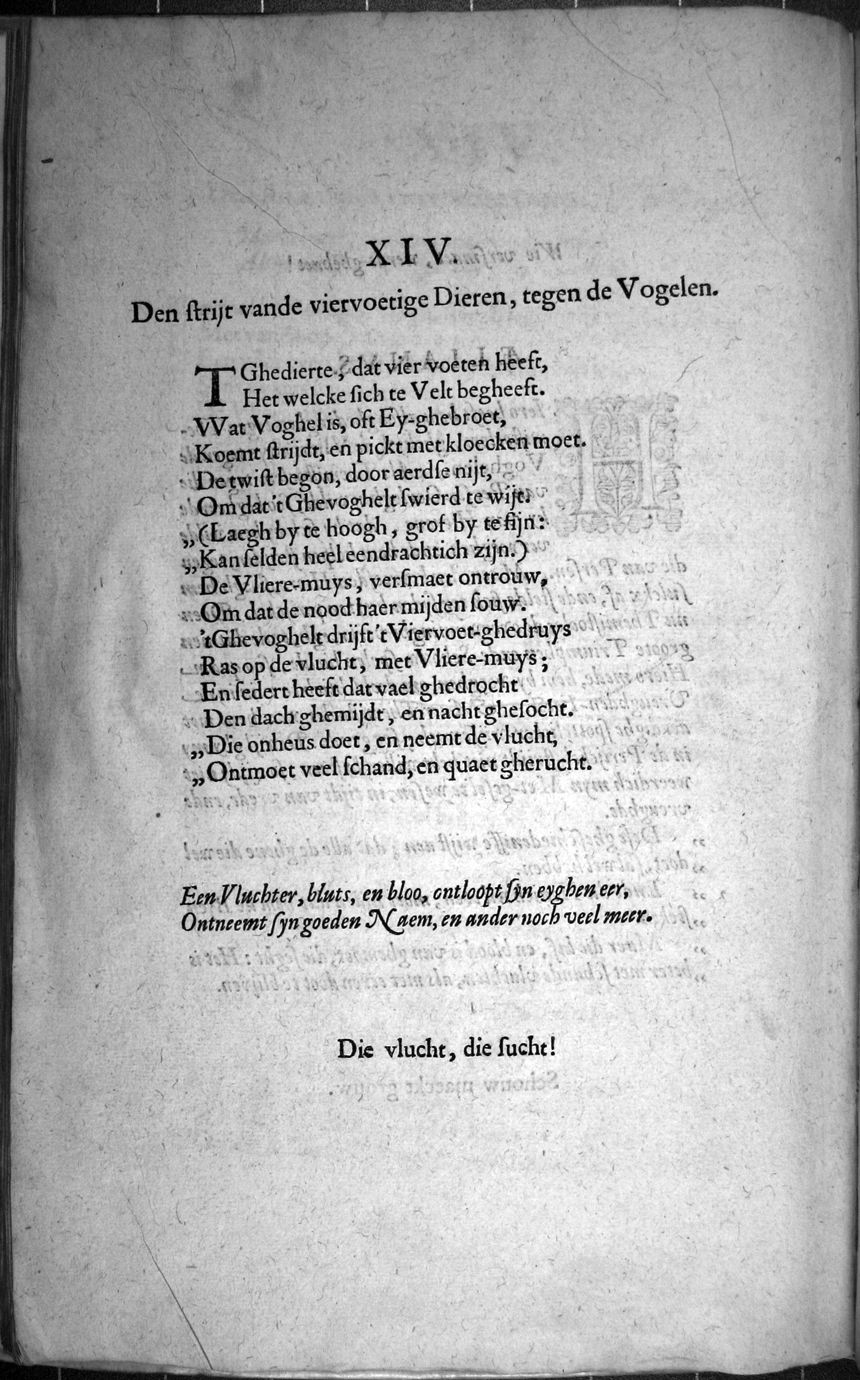 XIV.
Den ſtrijt vande viervoetige Dieren, tegen de Vogelen.
T Ghedierte, dat vier voeten heeft,
Het welcke ſich te Velt begheeft.
Wat Voghel is, oft Ey-ghebroet,
Koemt ſtrijdt, en pickt met kloecken moet.
De twiſt begon, door aerdſe nijt,
Om dat 't Ghevoghelt ſwierd te wijt.
„(Laegh by te hoogh, grof by te fijn:
„Kan ſelden heel eendrachtich zijn.)
De Vliere-muys, verſmaet ontrouw,
Om dat de nood haer mijden ſouw.
'tGhevoghelt drijft 't Viervoet-ghedruys
Ras op de vlucht, met Vliere-muys;
En ſedert heeft dat vael ghedrocht
Den dach ghemijdt, en nacht gheſocht.
„Die onheus doet, en neemt de vlucht,
„Ontmoet veel ſchand, en quaet gherucht.
Een Vluchter, bluts, en bloo, ontloopt ſyn eyghen eer,
Ontneemt ſyn goeden Naem, en ander noch veel meer.
Die vlucht, die ſucht!